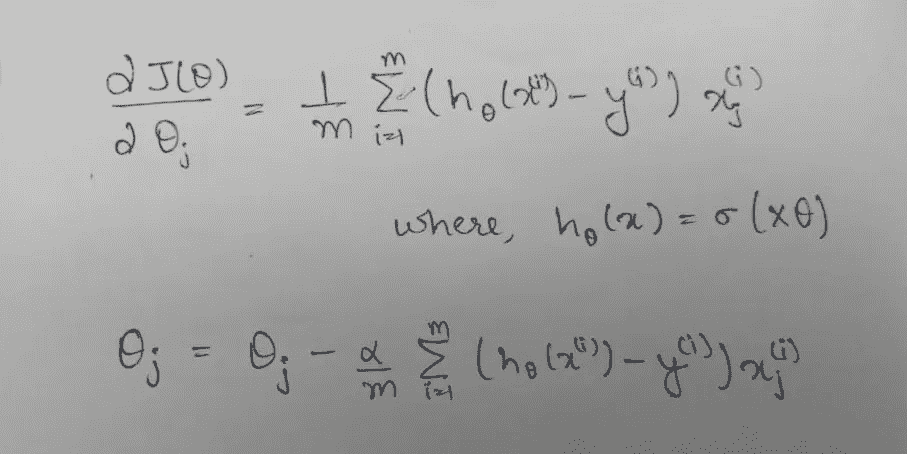 ∂J(θ)/∂θⱼ = 1/m Σᵢ₌₁ᵐ (h_θ(x⁽ⁱ⁾) - y⁽ⁱ⁾) xⱼ⁽ⁱ⁾
where, h_θ(x) = σ(xθ)
θⱼ = θⱼ - α/m Σᵢ₌₁ᵐ (h_θ(x⁽ⁱ⁾) - y⁽ⁱ⁾) xⱼ⁽ⁱ⁾